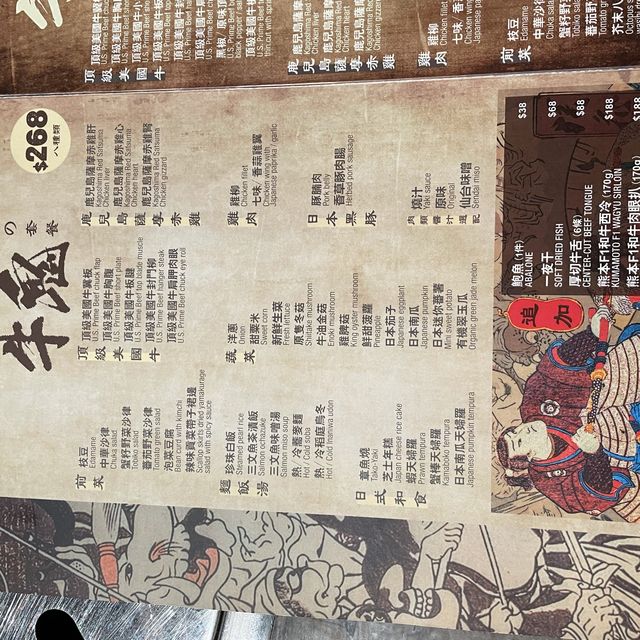 牛鬼の套餐
$268
八種類
前菜
枝豆
Edamame
中華沙律
Chuka salad
蟹籽野菜沙律
Tobiko salad
番茄野菜沙律
Tomato green salad
泡菜豆腐
Bean curd with kimchi
辣味貢菜帶子裙邊
Scallop skirts dried yamakurage
salad with spicy sauce
麵飯湯
珍珠白飯
Steamed pearl rice
三文魚茶漬飯
Salmon ochazuke
三文魚味噌湯
Salmon miso soup
熱 冷蕎麥麵
Hot / Cold soba
熱 冷稻庭烏冬
Hot / Cold Inaniwa udon
日式和食
章魚燒
Tako-Yaki
芝士年糕
Japan cheese rice cake
蝦天婦羅
Prawn tempura
蟹棒天婦羅
Kamaboko tempura
日本南瓜天婦羅
Japanese pumpkin tempura
頂級美國牛
頂級美國牛翼板
U.S. Prime Beef chuck flap
頂級美國牛胸腹
U.S. Prime Beef short plate
頂級美國牛板腱
U.S. Prime Beef top blade muscle
頂級美國牛封門柳
U.S. Prime Beef hunger steak
頂級美國牛肩胛肉眼
U.S. Prime Beef chuck eye roll
蔬菜
洋蔥
Onion
甜粟米
Sweet corn
新鮮生菜
Fresh lettuce
原隻冬菇
Shiitake mushroom
牛油金菇
Enoki mushroom
雞脾菇
King oyster mushroom
鮮甜菠蘿
Pineapple
日本茄子
Japanese eggplant
日本南瓜
Japanese pumpkin
日本迷你番薯
Mini sweet potato
有機翠玉瓜
Organic green jade melon
鹿兒島薩摩赤雞
鹿兒島薩摩赤雞肝
Kagoshima Red Satsuma
Chicken liver
鹿兒島薩摩赤雞心
Kagoshima Red Satsuma
Chicken heart
鹿兒島薩摩赤雞腎
Kagoshima Red Satsuma
Chicken gizzard
雞肉
雞柳
Chicken fillet
七味/ 香蒜雞翼
Chicken wing with
Japanese paprika / garlic
日本黑豚
豚腩肉
Pork belly
香草豚肉腸
Herbed pork sausage
肉類醬汁選配
燒汁
Yaki sauce
原味
Original
仙台味噌
Sendai miso
追加
鮑魚 (1件) $38
ABALONE
一夜干 $68
SEMI DRIED FISH
厚切牛舌 (6條) $88
CENTER-CUT BEEF TONGUE
熊本F1和牛西冷 (170g) $188
KUMAMOTO F1 WAGYU SIRLOIN
熊本F1和牛肉眼扒 (170g) $188